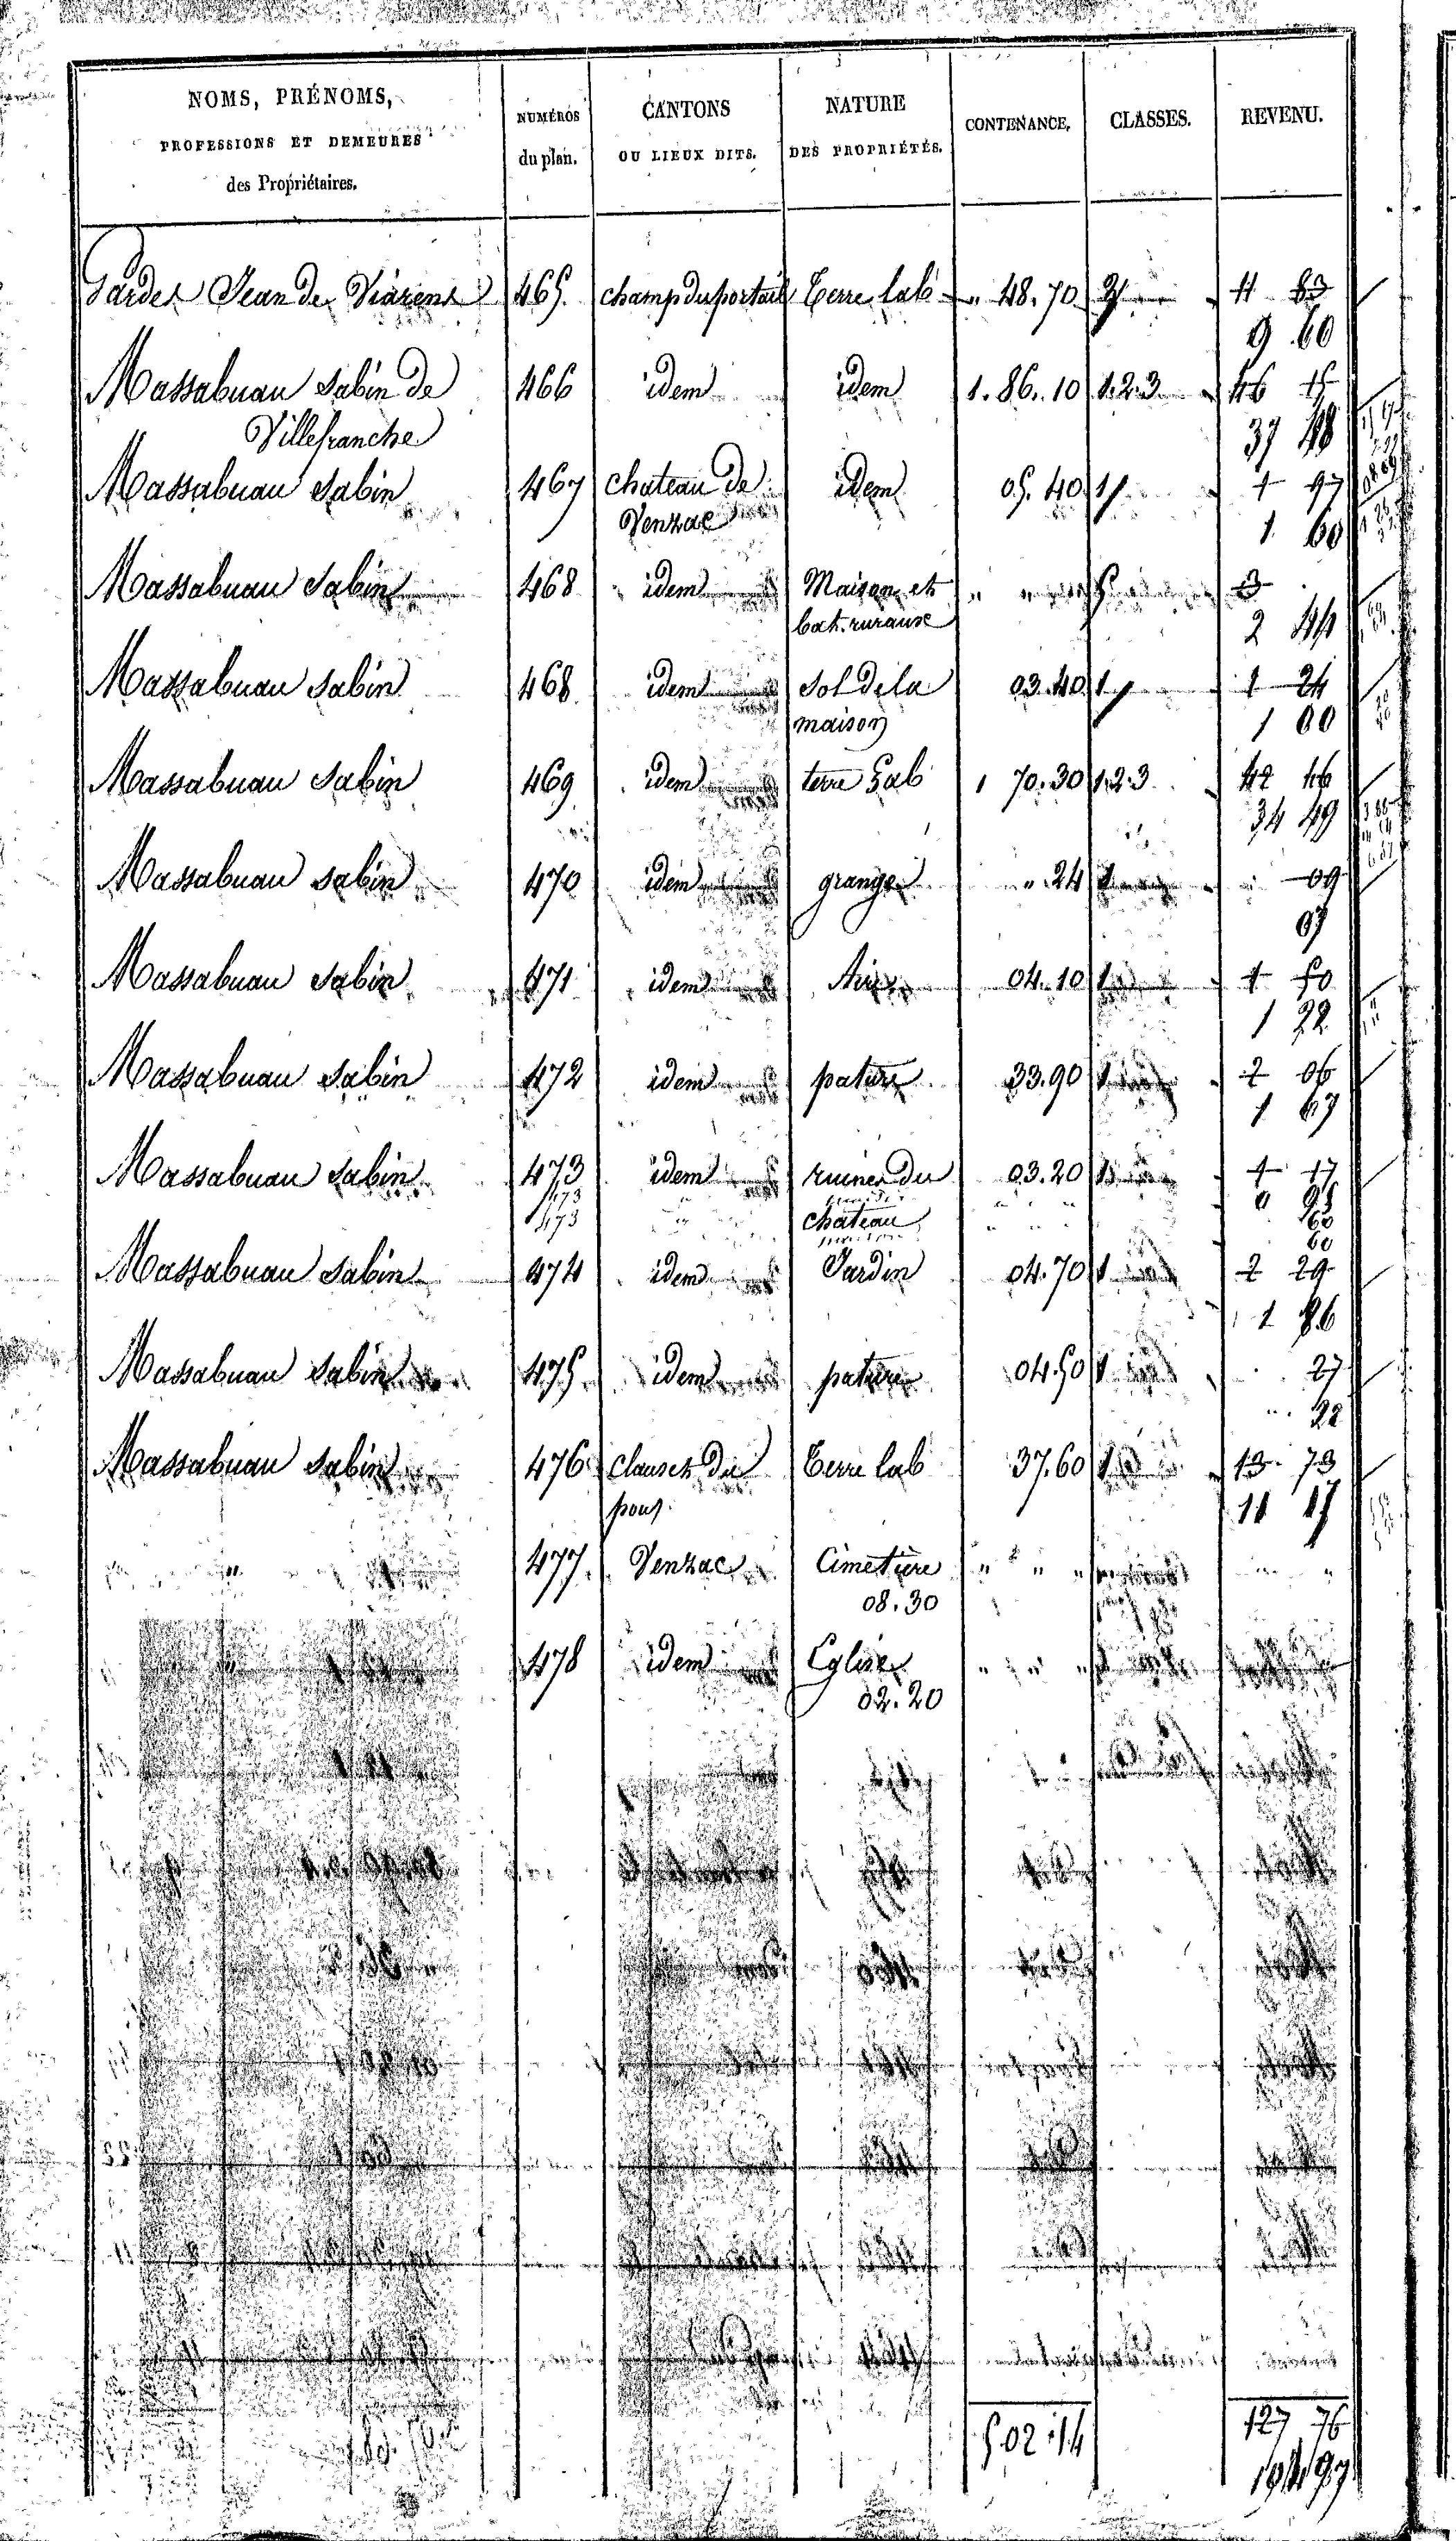 NOMS, PRÉNOMS,
PROFESSIONS ET DEMEURES
des Propriétaires.
NUMÉROS
du plan.
CANTONS
OU LIEUX DITS.
NATURE
DES PROPRIÉTÉS.
CONTENANCE.
CLASSES.
REVENU.
Jean de 465. champ du portail Terre lab " 48.70 11 83
9 60
Massabuau Sabin de 466 idem idem 1.86.10 1.2.3 46 15
Villefranche 37 48
Massabuau Sabin 467 chateau de idem 05.40 1 1 97
Venzac 1 60
Massabuau Sabin 468 idem Maison et " " 5 3
bat. ruraux 2 44
Massabuau Sabin 468 idem sol de la 03.40 1 1 24
maison 1 00
Massabuau Sabin 469 idem terre Lab 1 70.30 1.2.3 42 46
34 49
Massabuau Sabin 470 idem grange " 24 1 09
07
Massabuau Sabin 471 idem Aire 04.10 1 1 50
1 22
Massabuau Sabin 472 idem pature 33.90 1 2 06
1 67
Massabuau Sabin 473 idem ruines du 03.20 1 1 17
473 0 95
473 chateau 60
60
Massabuau Sabin 474 idem Jardin 04.70 1 2 29
1 86
Massabuau Sabin 475 idem pature 04.50 1 27
22
Massabuau Sabin 476 clausets du Terre lab 37.60 1 13 73
11 17
477 Venzac Cimetière " " "
08.30
478 idem Eglise " " "
02.20
502 14 127 76
104 97